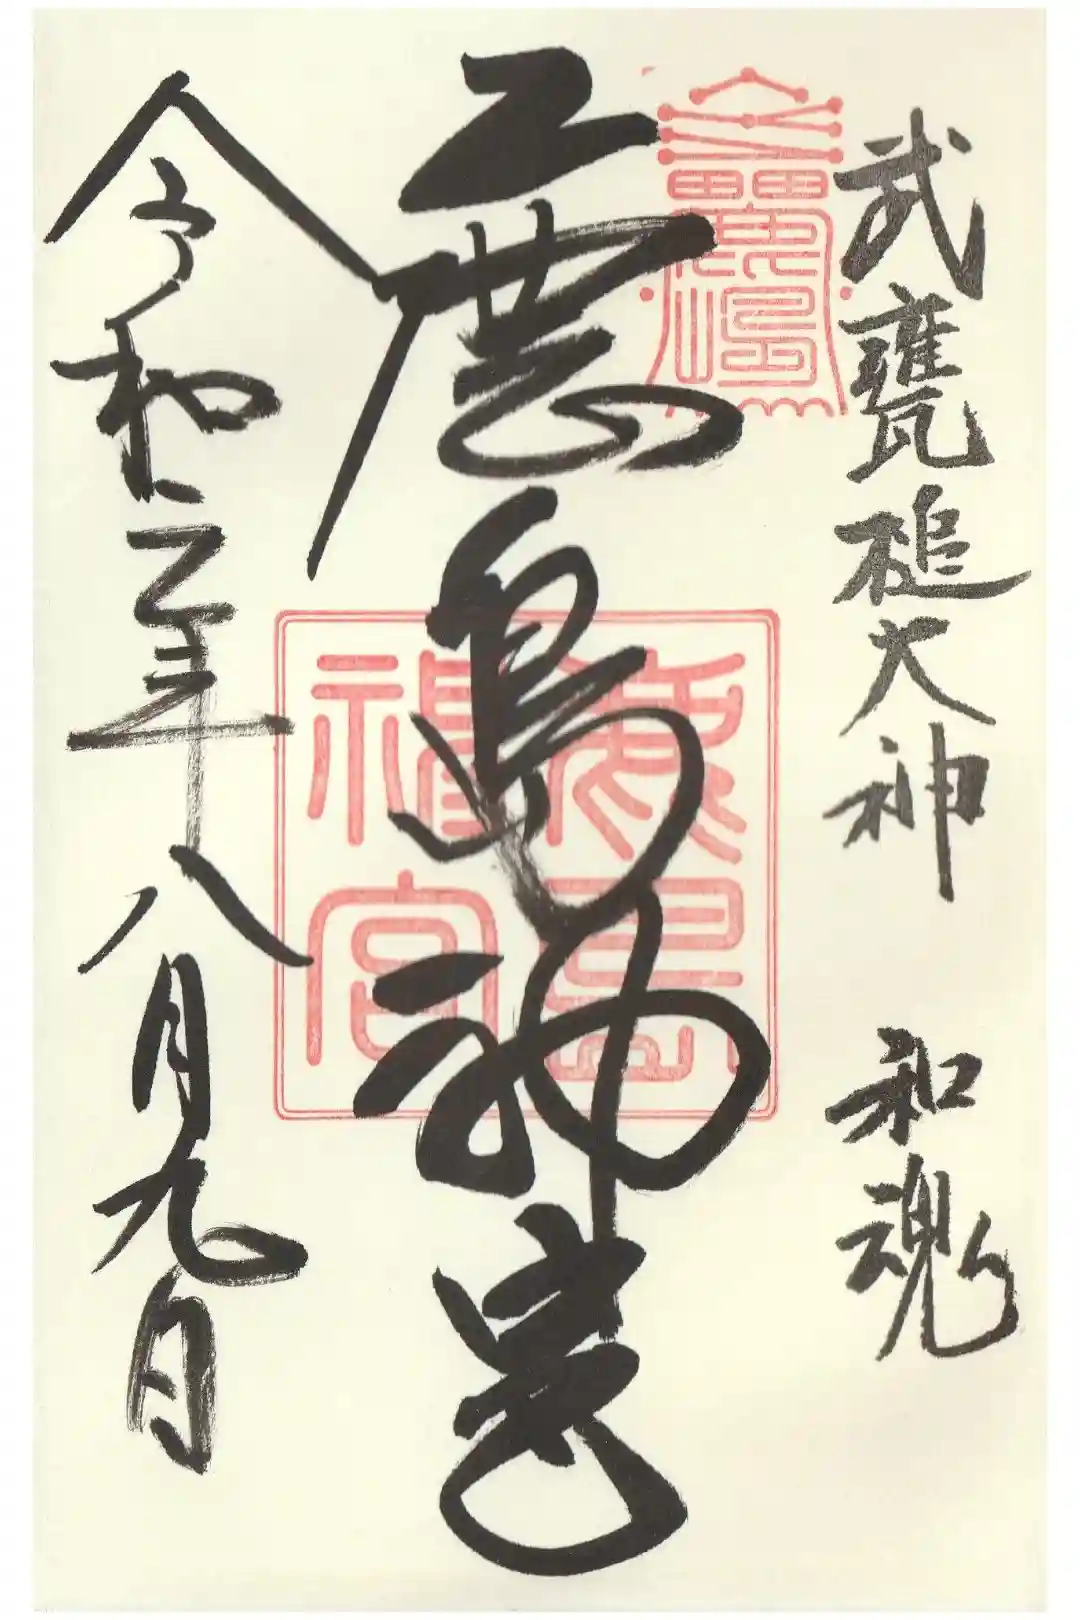 武甕槌大神 和魂
鹿島神宮
令和年八月九日
鹿島神宮